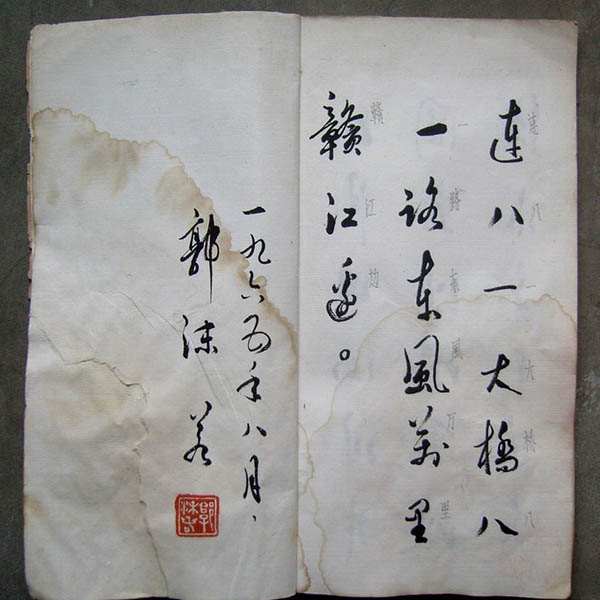 連八一大橋八
八一大桥八
一路東風萬里
一路东風万里
贛江邊。
赣江边
一九六五年八月、
郭沫若
郭沫若